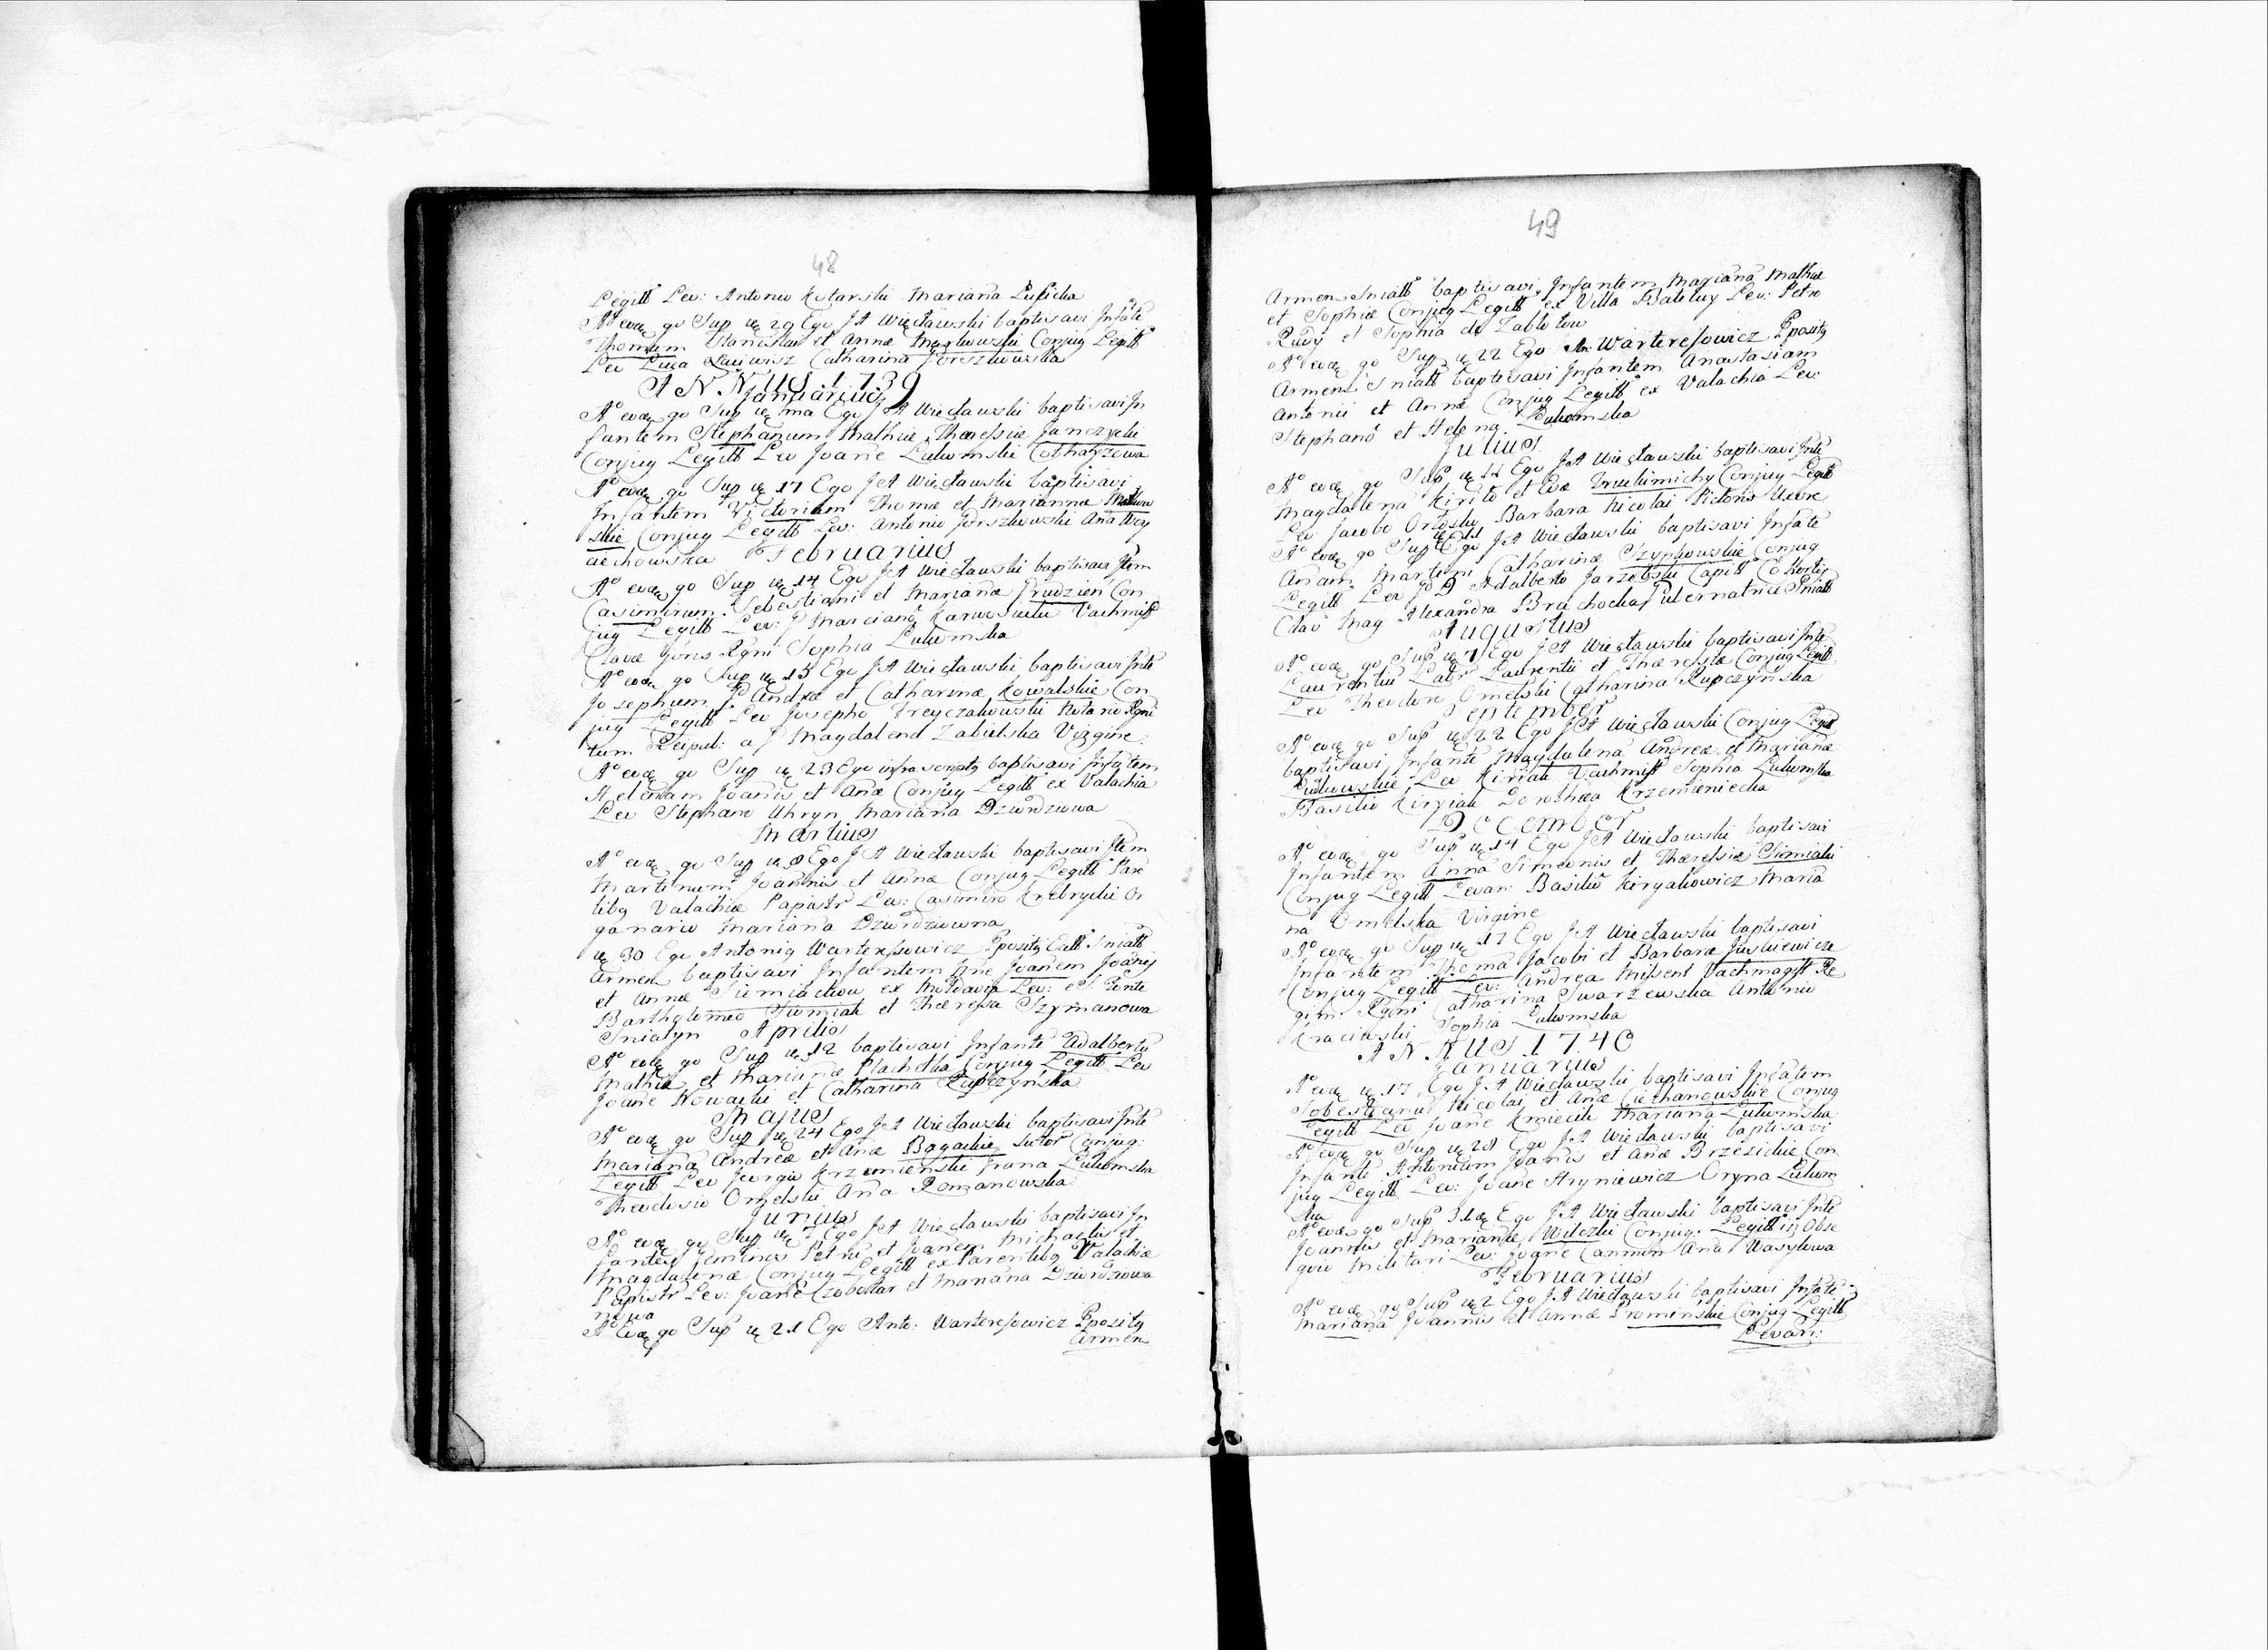 48
Legitt Lev: Antonio Kotarski Mariana Lusicka
Aº eodq go Sup ue 29 Ego JA Więcławski baptisavi Infãte
Thomam Stanislai et Anna Conjug Legitt
Lev Luca Catharina Joreszkowska
ANNUS 1739
Januarius
Aº eodq go Sup ue ma Ego JA Więcławski baptisavi In
fantem Stephanum Mathiæ Theressiæ Janczycki
Conjug Legitt Lev Joane Lukomski
Aº eodq go Sup ue 17 Ego JA Więcławski baptisavi
Infantem Victoriam Thomæ et Marianna
skie Conjug Legitt Lev: Antonio Joreszkowski Ana Woy
ciechowska Februarius
Aº eodq go Sup ue 14 Ego JA Więcławski baptisavi Ifem
Casimirum Sebestiani et Marianæ Prudzien Con
jug Legitt Lev: Marciano Vachmist
Clavæ Yoris Rgni Sophia Lukomska
Aº eodq go Sup ue 15 Ego JA Więcławski baptisavi Infte
Josephum Andræ et Catharinæ Kowalskie Con
jug Legitt Lev Josepho Treyczakowski Notario Rgni
tum Reipub: a f Magdalena Zabielska Virgine
Aº eodq go Sup ue 23 Ego infra scriptq baptisavi Infatem
Helenam Joanis et Anæ Conjug Legitt ex Valachia
Lev Stephano Uhryn Mariana Dziurdziowa
Martius
Aº eodq go Sup ue 8 Ego JA Więcławski baptisavi Ifem
Martinum Joannis et Annæ Conjug Legitt Pare
tibq Valachiæ Papistr Lev: Casimiro Or
ganario Mariana Dziurdziowna
ue 30 Ego Antoniq Warteresowicz Pposity Ecclł Sniatt
Armen baptisavi Infantem Joanem Joãnis
et Annæ ex Moldavia Lev: e S. Fonte
Bartholomeo Siemiak et Theresa Szymanowa
Sniatyn Aprilis
Aº eodq go Sup ue 12 baptisavi Infante Adalbertu
Mathiæ et Marianæ Plachetka Conjug Legitt Lev
Joane Nowacki et Catharina Kupczynska
Majus
Aº eodq go Sup ue 24 Ego JA Więcławski baptisavi Infte
Mariana Andreæ et Anæ Bogackie sutor Conjug:
Legitt Lev Georgio Krzemienski Lukomska
Theodosio Omelski Ana Romanowska
Junius
Aº eodq go Sup ue Ego JA Więcławski baptisavi In
fantes geminos Petru et Joanem Michaelis et
Magdalenæ Conjug Legitt ex Parentibq Valachiæ
Papistr Lev: Joane Czobotar et Mariana Dziurdziowa
nowa
Aº eodq go Sup ue 21 Ego Anto: Warteresowicz Pposity
Armen
49
Armen Sniatt baptisavi Infantem Mariana Mathiæ
et Sophiæ Conjug Legitt ex Villa Lev: Petro
Rudy et Sophia de Zabłotow
Aº eodq go Sup ue 22 Ego An: Warteresowicz Pposity
Armen Sniatt baptisavi Infantem Anastasiam
Antonii et Annæ Conjug Legitt ex Valachia Lev:
Stephano et Helena Lukomska
Julius
Aº eodq go Sup ue 11 Ego JA Więcławski baptisavi Infte
Magdalena Kiriło et Evæ Conjug Legitt
Lev Jacobo Barbara Nicolai Pictoris Uxore
Aº eodq go Sup ue Ego JA Więcławski baptisavi Infãte
Anam Martini Catharinæ Szypkowskie Conjug
Legitt Lev Adalberto Jarzebski Capitt Cohortis
Clav Mag Alexandra Brachocka Gubernatrice Sniatt
Augustus
Aº eodq go Sup ue 7 Ego JA Więcławski baptisavi Infte
Laurentiu Labr Laurentii et Theressiæ Conjug Legitt
Lev Theodoro Omelski Catharina Kupczynska
September
Aº eodq go Sup ue 22 Ego JA Więcławski Conjug Legitt
baptisavi Infante Magdalena Andreæ et Marianæ
Lev Kiriak Vachmist Sophia Lukomska
Basilio Kiryiak Dorothea Krzemieniecka
December
Aº eodq go Sup ue 14 Ego JA Więcławski baptisavi
Infantem Anna Simeonis et Theressiæ Simiaki
Conjug Legitt Levan: Basilio Kiryakowicz Maria
na Omelska Virgine
Aº eodq go Sup ue 17 Ego JA Więcławski baptisavi
Infantem Thoma Jacobi et Barbaræ Juskiewicze
Conjug Legitt Lev: Andrea Misent Vachmagst Re
gim Rgni Catharina Swarzewska Antonio
Kraciwski Sophia Lukomska
ANNUS 1740
Januarius
Aº eodq ue 17 Ego JA Więcławski baptisavi Infatem
Sobestianu Nicolai et Anæ Ciechanowskie Conjug
Legitt Lev Joane Kmiecik Mariana Lukomska
Aº eodq go Sup ue 28 Ego JA Więcławski baptisavi
Infante Antonium Joanis et Anæ Brzezickie Con
jug Legitt Lev: Joane Hryniewicz Oryna Lukom
ska
Aº eodq go Sup 31 Ego JA Więcławski baptisavi Infte
Joannis et Marianæ Wilczki Conjug: Legitt in Obse
quio Militari Lev: Joane Carmin Ana Wasylowa
Februarius
Aº eodq go Sup ue 2 Ego JA Więcławski baptisavi Infãte
Mariana Joannis et Annæ Prominskie Conjug Legitt
Levan: